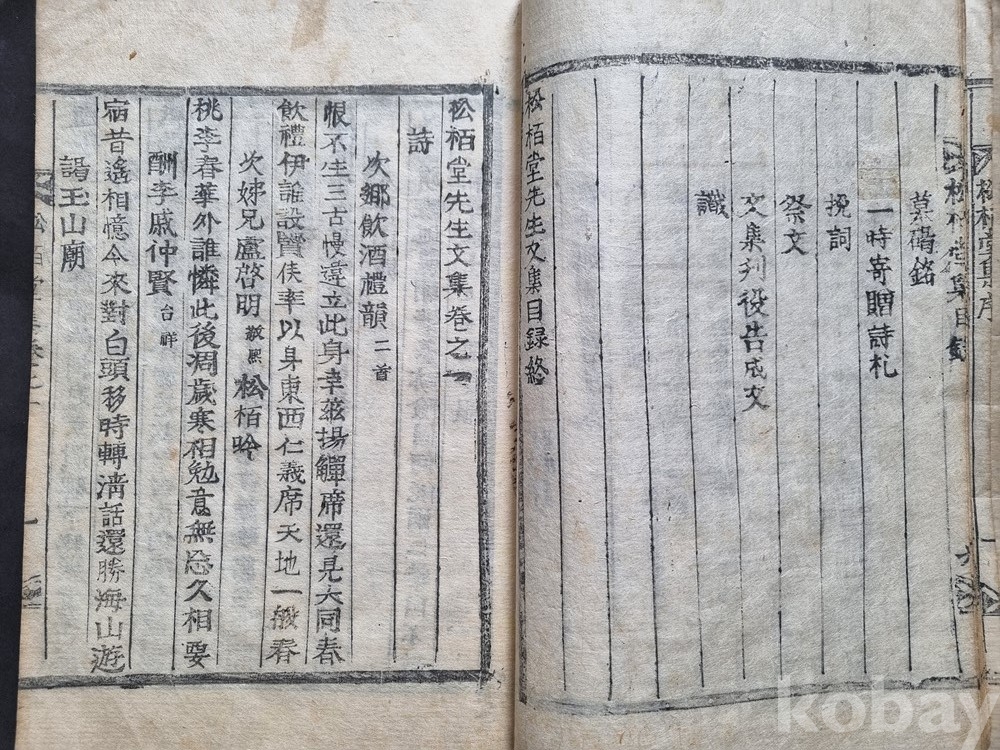 墓碣銘
一時寄贈詩札
挽詞
祭文
文集刋役告成文
識
松栢堂先生文集目録終
松栢堂先生文集卷之一
詩
次鄉飮酒禮韻 二首
恨不生三古慢違立此身幸玆揚觶席還見大同春
飮禮伊誰設賓俟率以身東西仁義席天地一般春
次姊兄盧啓明 敬熙 松栢吟
桃李春華外誰憐此後凋歲寒相勉意無忘久相要
酬李戚仲賢 台祥
宿昔遙相憶今來對白頭移時轉淸話還勝海山遊
謁玉山廟
kobay